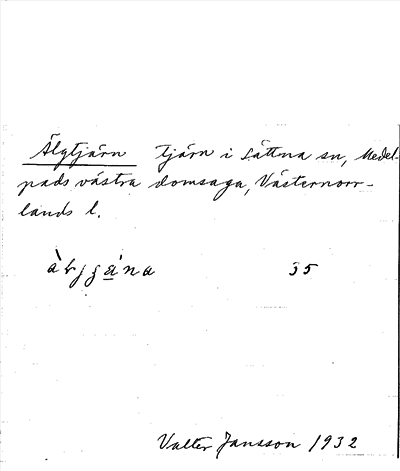 Älgtjärn tjärn i Sättna sn, Medel-
pads västra domsaga, Västernorr-
lands l.
35
Valter Jansson 1932